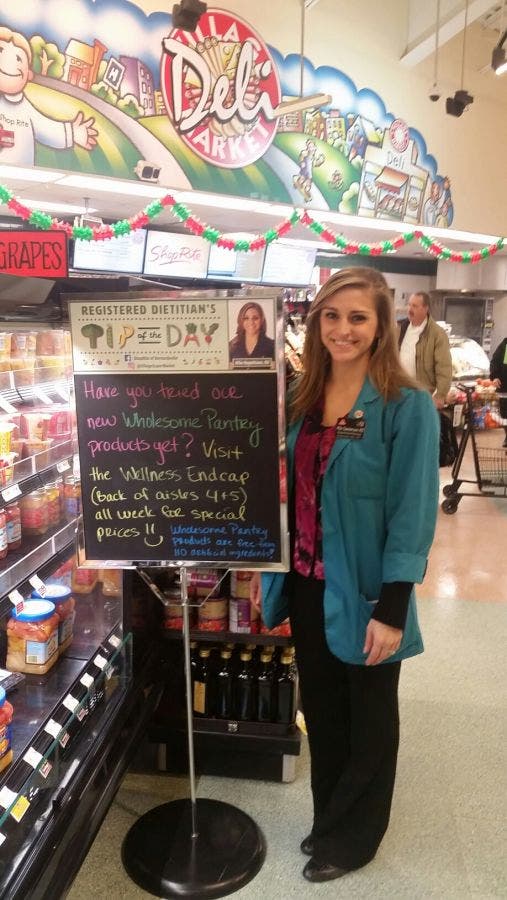 VILLAGE
Deli
MARKET
Shop Rite
Deli
GRAPES
ShopRite
REGISTERED DIETITIAN'S
TIP of the DAY
Have you tried our
new Wholesome Pantry
products yet? Visit
the Wellness Endcap
(Back of aisles 4+5)
all week for special
prices!!
Wholesome Pantry
products are free-from
110 artificial ingredients!